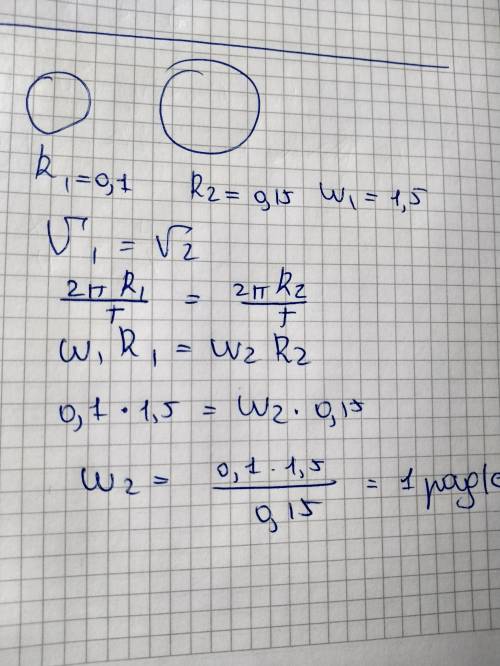 R₁=0,1 R₂= 0,15 ω₁= 1,5
υ₁ = υ₂
2π R₁/T = 2π R₂/T
ω₁ R₁ = ω₂ R₂
0,1 · 1,5 = ω₂ · 0,15
ω₂ = 0,1 · 1,5/0,15 = 1 рад/с